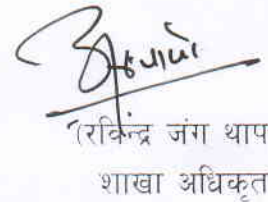 (रविन्द्र जंग थाप
शाखा अधिकृत